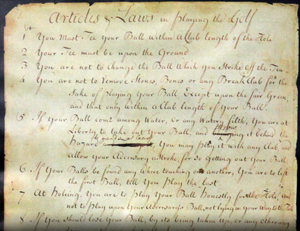 Articles & Laws in playing the Golf
1 You Must Tee your Ball within a Club length of the Hole
2 Your Tee must be upon the Ground
3 You are not to change the Ball which you Stroke off the Tee
4 You are not to remove Stones, Bones or any Break Club for the
Sake of playing your Ball Except upon the fair Green
and that only within a Club length of your Ball
5 If your Ball come among Water, or any watery filth, You are at
Liberty to take out your Ball, and it behind the
hazard You may play it with any Club and
allow your Adversary a Stroke, for so getting out your Ball
6 If your Balls be found any where touching one another, You are to lift
the first Ball, till You play the last
7 At Holeing, You are to play Your Ball Honestly for the Hole, and
not to play upon your Adversary's Ball, not lying in your Way to the Hole
8 If you should lose Your Ball by its being taken up, or any other way